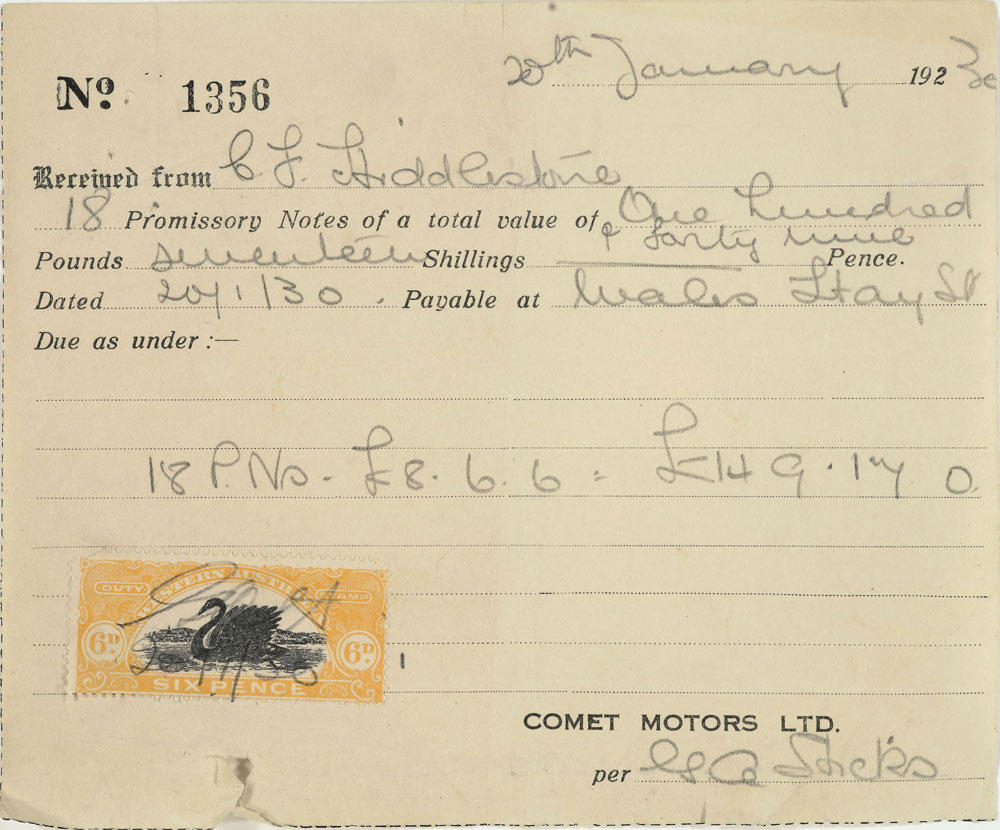 20th January 192 30
No. 1356
Received from C. F. Hiddlestone
18 Promissory Notes of a total value of One hundred
& forty nine
Pounds seventeen Shillings — Pence.
Dated 20/1/30. Payable at Wales Hay St
Due as under :—
18 P.Ns. £8. 6. 6 = £149. 17. 0.
WESTERN AUSTRALIA
DUTY STAMP
6D. 6D.
20/1/30
SIX PENCE
COMET MOTORS LTD.
per